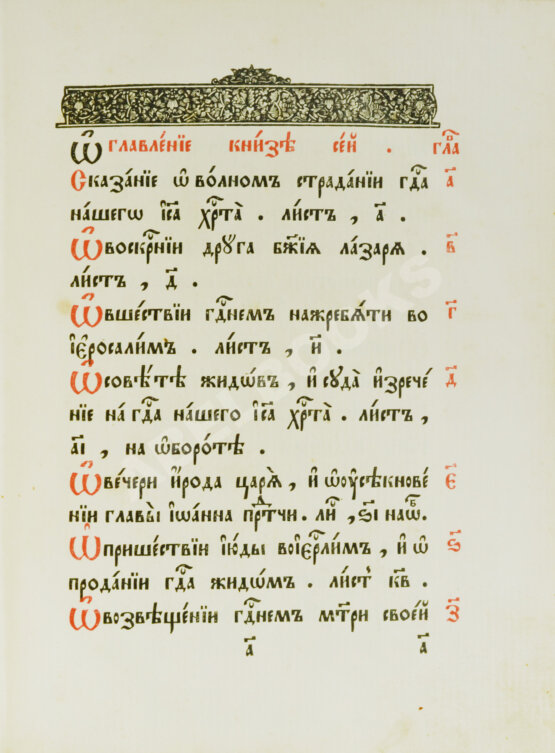 Ѡглавле́нїе кни́зѣ се́й . гла҃
Сказа́нїе ѡ во́лномъ страда́нїи гдⷭ҇а а҃
на́шегѡ і҆са хрⷭ҇та̀ . ли́стъ , а҃ .
Ѡвоскр҃нїи дрꙋга бж҃їѧ ла́зарѧ . в҃
ли́стъ , д҃ .
Ѡвше́ствїи гдⷭ҇нем нажребѧ́ти во г҃
і҆еросали́м . ли́стъ , и҃ .
Ѡсовѣ́тѣ жидо́въ , и҆ сꙋда̀ и҆зрече́ д҃
нїе на́ гдⷭ҇а на́шего і҆са хрⷭ҇та̀ . ли́стъ ,
а҃і , на ѡ҆боро́тѣ .
Ѡве́чери и҆́рода царѧ̀ , и҆ ѡ҆оу҆сѣкнове́ е҃
нїи главы̀ і҆ѡа́нна прⷣтчи . лиⷭ҇ , ѕ҃і наѡ҆б.
Ѡприше́ствїи і҆ю́ды воі҆ерⷭ҇лим , и҆ ѡ҆ ѕ҃
прода́нїи гдⷭ҇а жидѡ́мъ . ли́ст к҃в .
Ѡвозвѣще́нїи гдⷭ҇нем мт҃ри свое́й з҃
а҃ а҃
ABELBOOKS